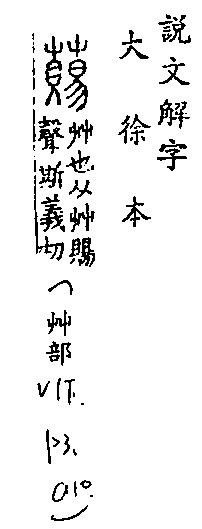 説文解字
大徐本
艸也从艸賜
聲斯義切
（艸部 V1下. P3.